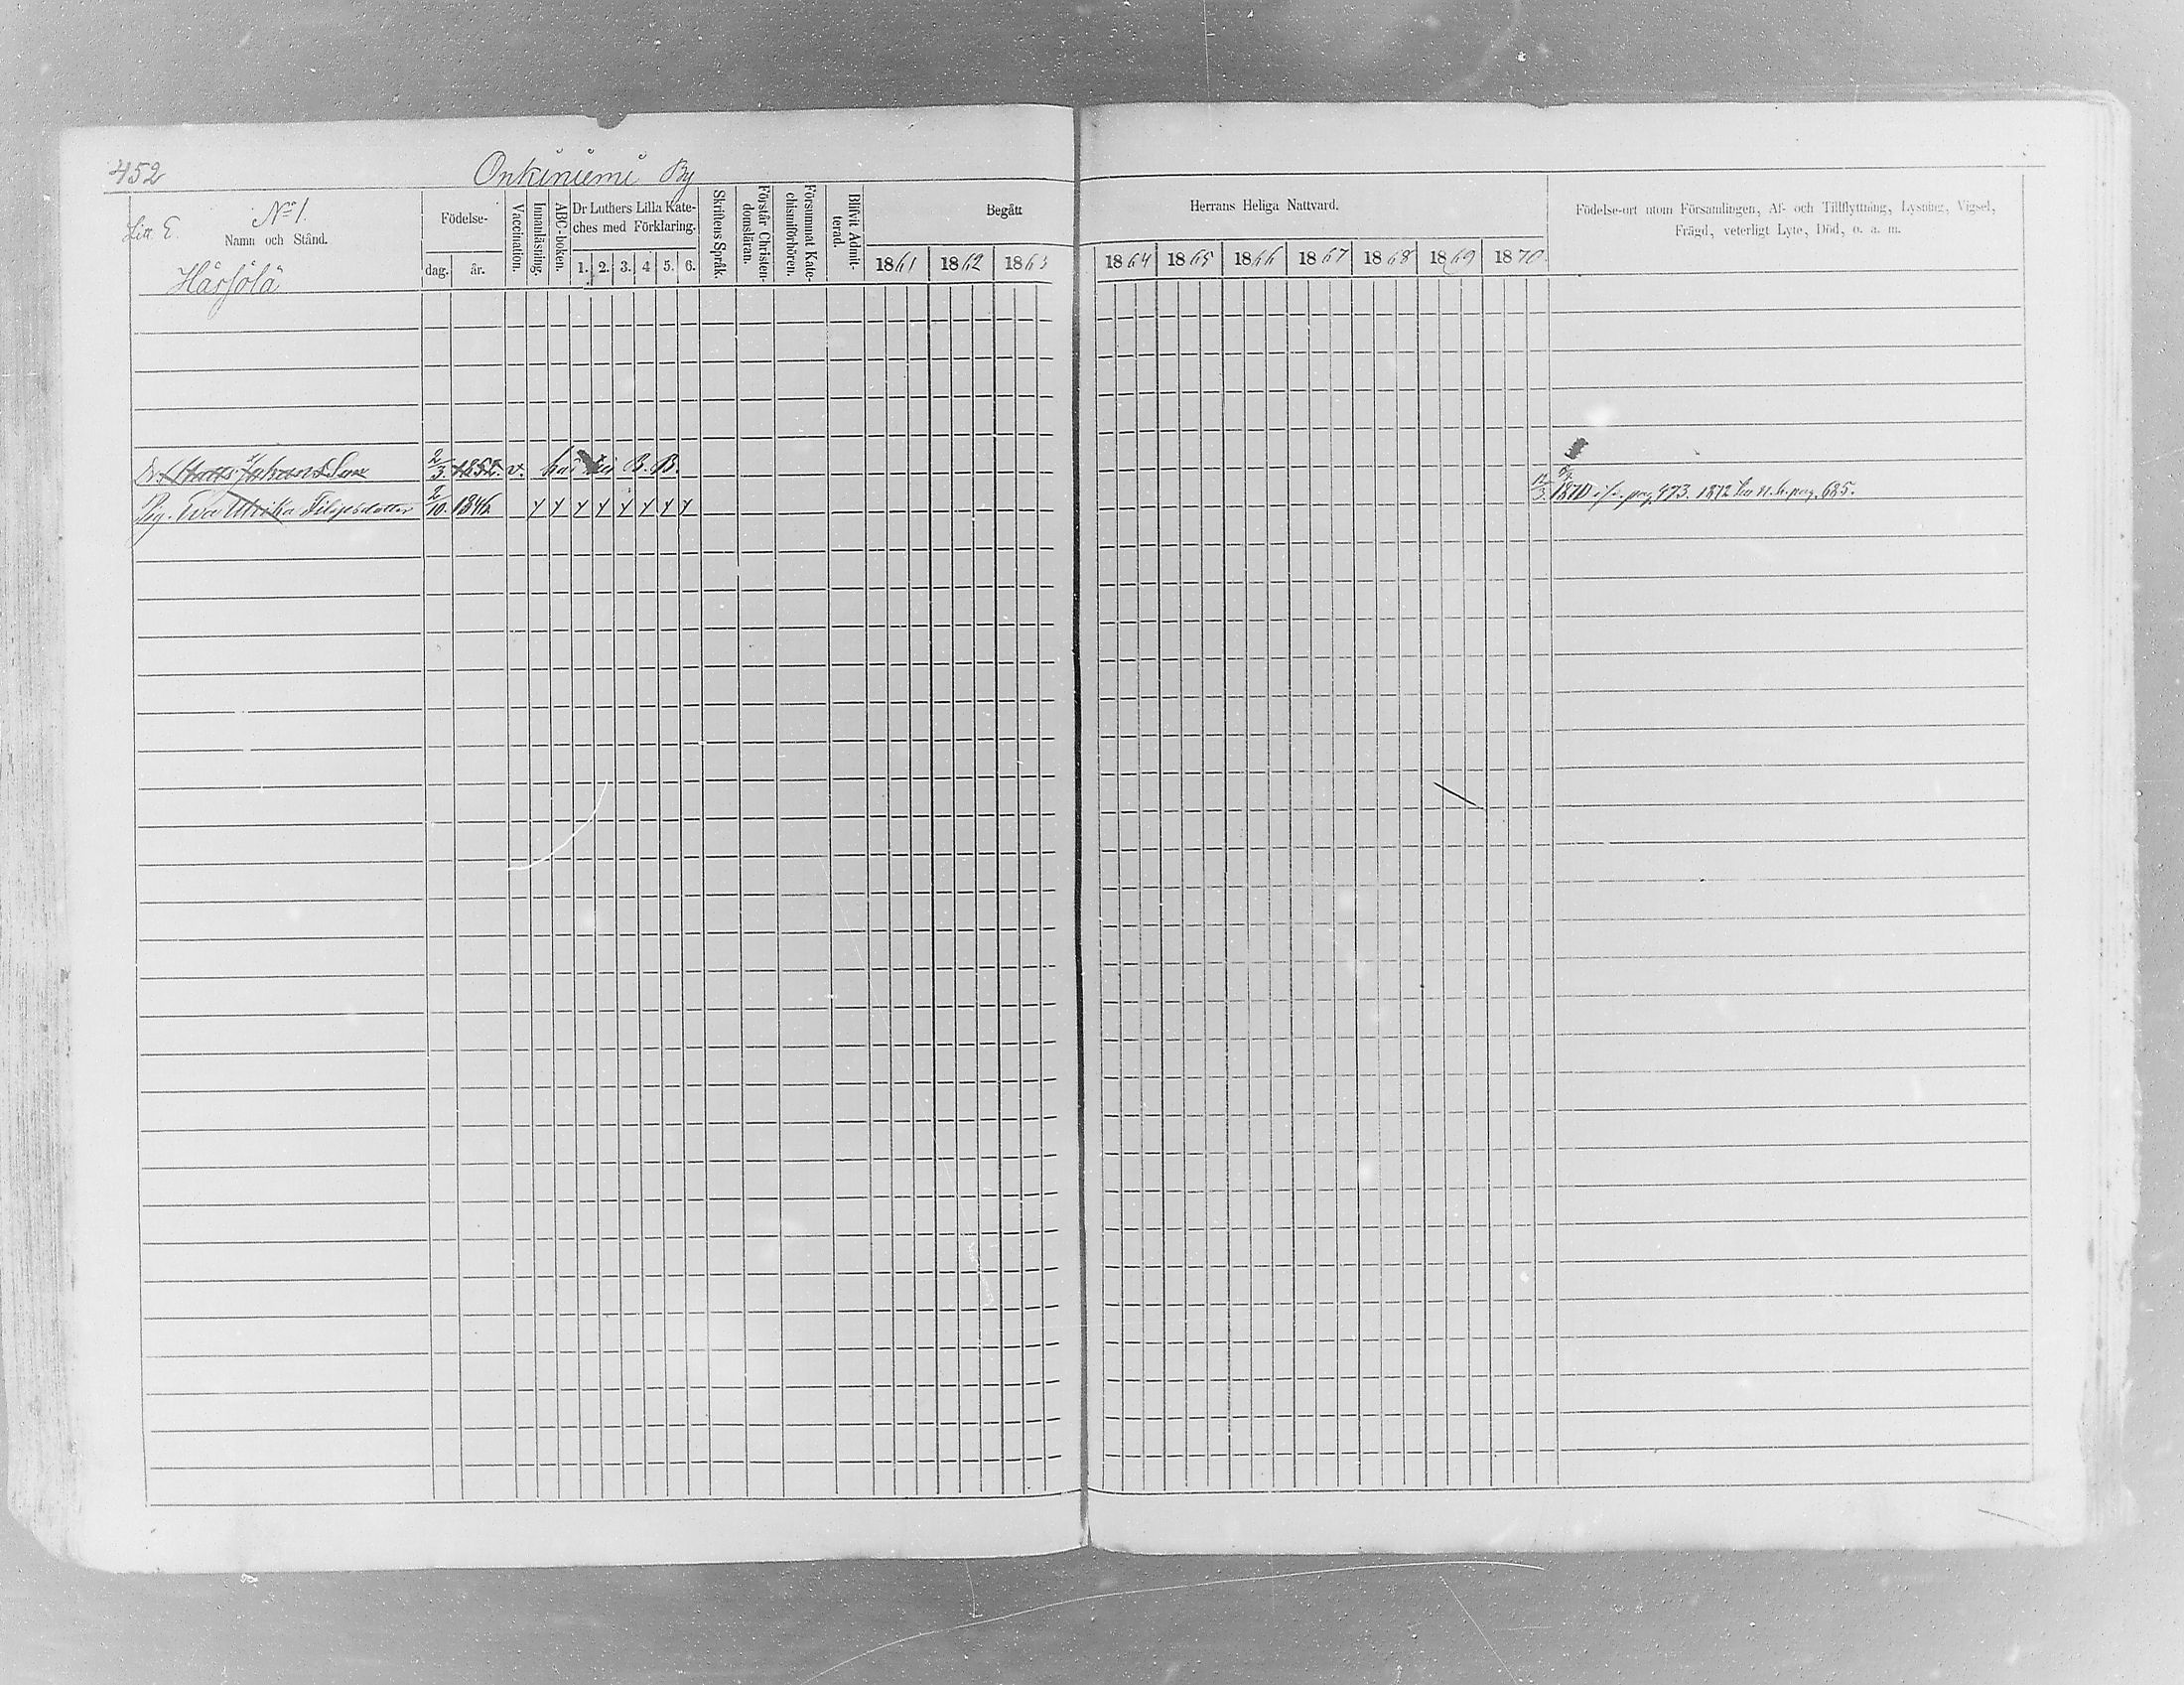 452
Onkiniemi By
Litt E. N:o 1.
Namn och Stånd.
Härjölä
Födelse-
dag. år.
Vaccination.
Innanläsning.
ABC-boken.
Dr Luthers Lilla Kate-
ches med Förklaring.
1. 2. 3. 4 5. 6.
Skriftens Språk.
Förstår Christen-
domsläran.
Försummat Kate-
chismiförhören.
Blifvit Admit-
terad.
Begått Herrans Heliga Nattvard.
1861 1862 1863 1864 1865 1866 1867 1868 1869 1870
Födelse-ort utom Församlingen, Af- och Tillflyttning, Lysning, Vigsel,
Frägd, veterligt Lyte, Död, o. a. m.
Johans Son 2/3. 1852. v. B. B.
Pig. Eva Ulrika Filipsdotter 2/10 1846 1870 pag. 473. 1872 pag. 685.